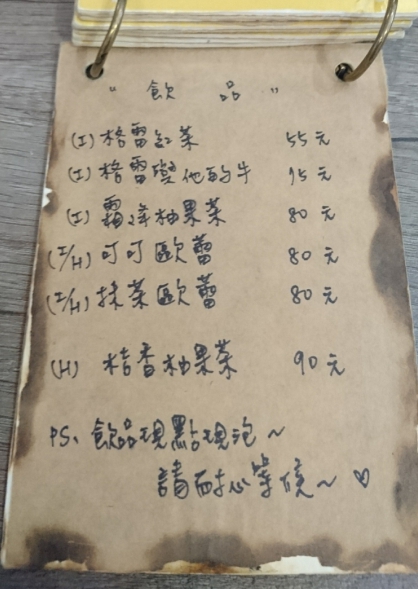 “ 飲 品 ”
(I) 格雷紅茶 55元
(I) 格雷變他的牛 75元
(I) 霜淇柚果茶 80元
(I/H) 可可歐蕾 80元
(I/H) 抹茶歐蕾 80元
(H) 桔香柚果茶 90元
PS、飲品現點現泡~
請耐心等候~♡